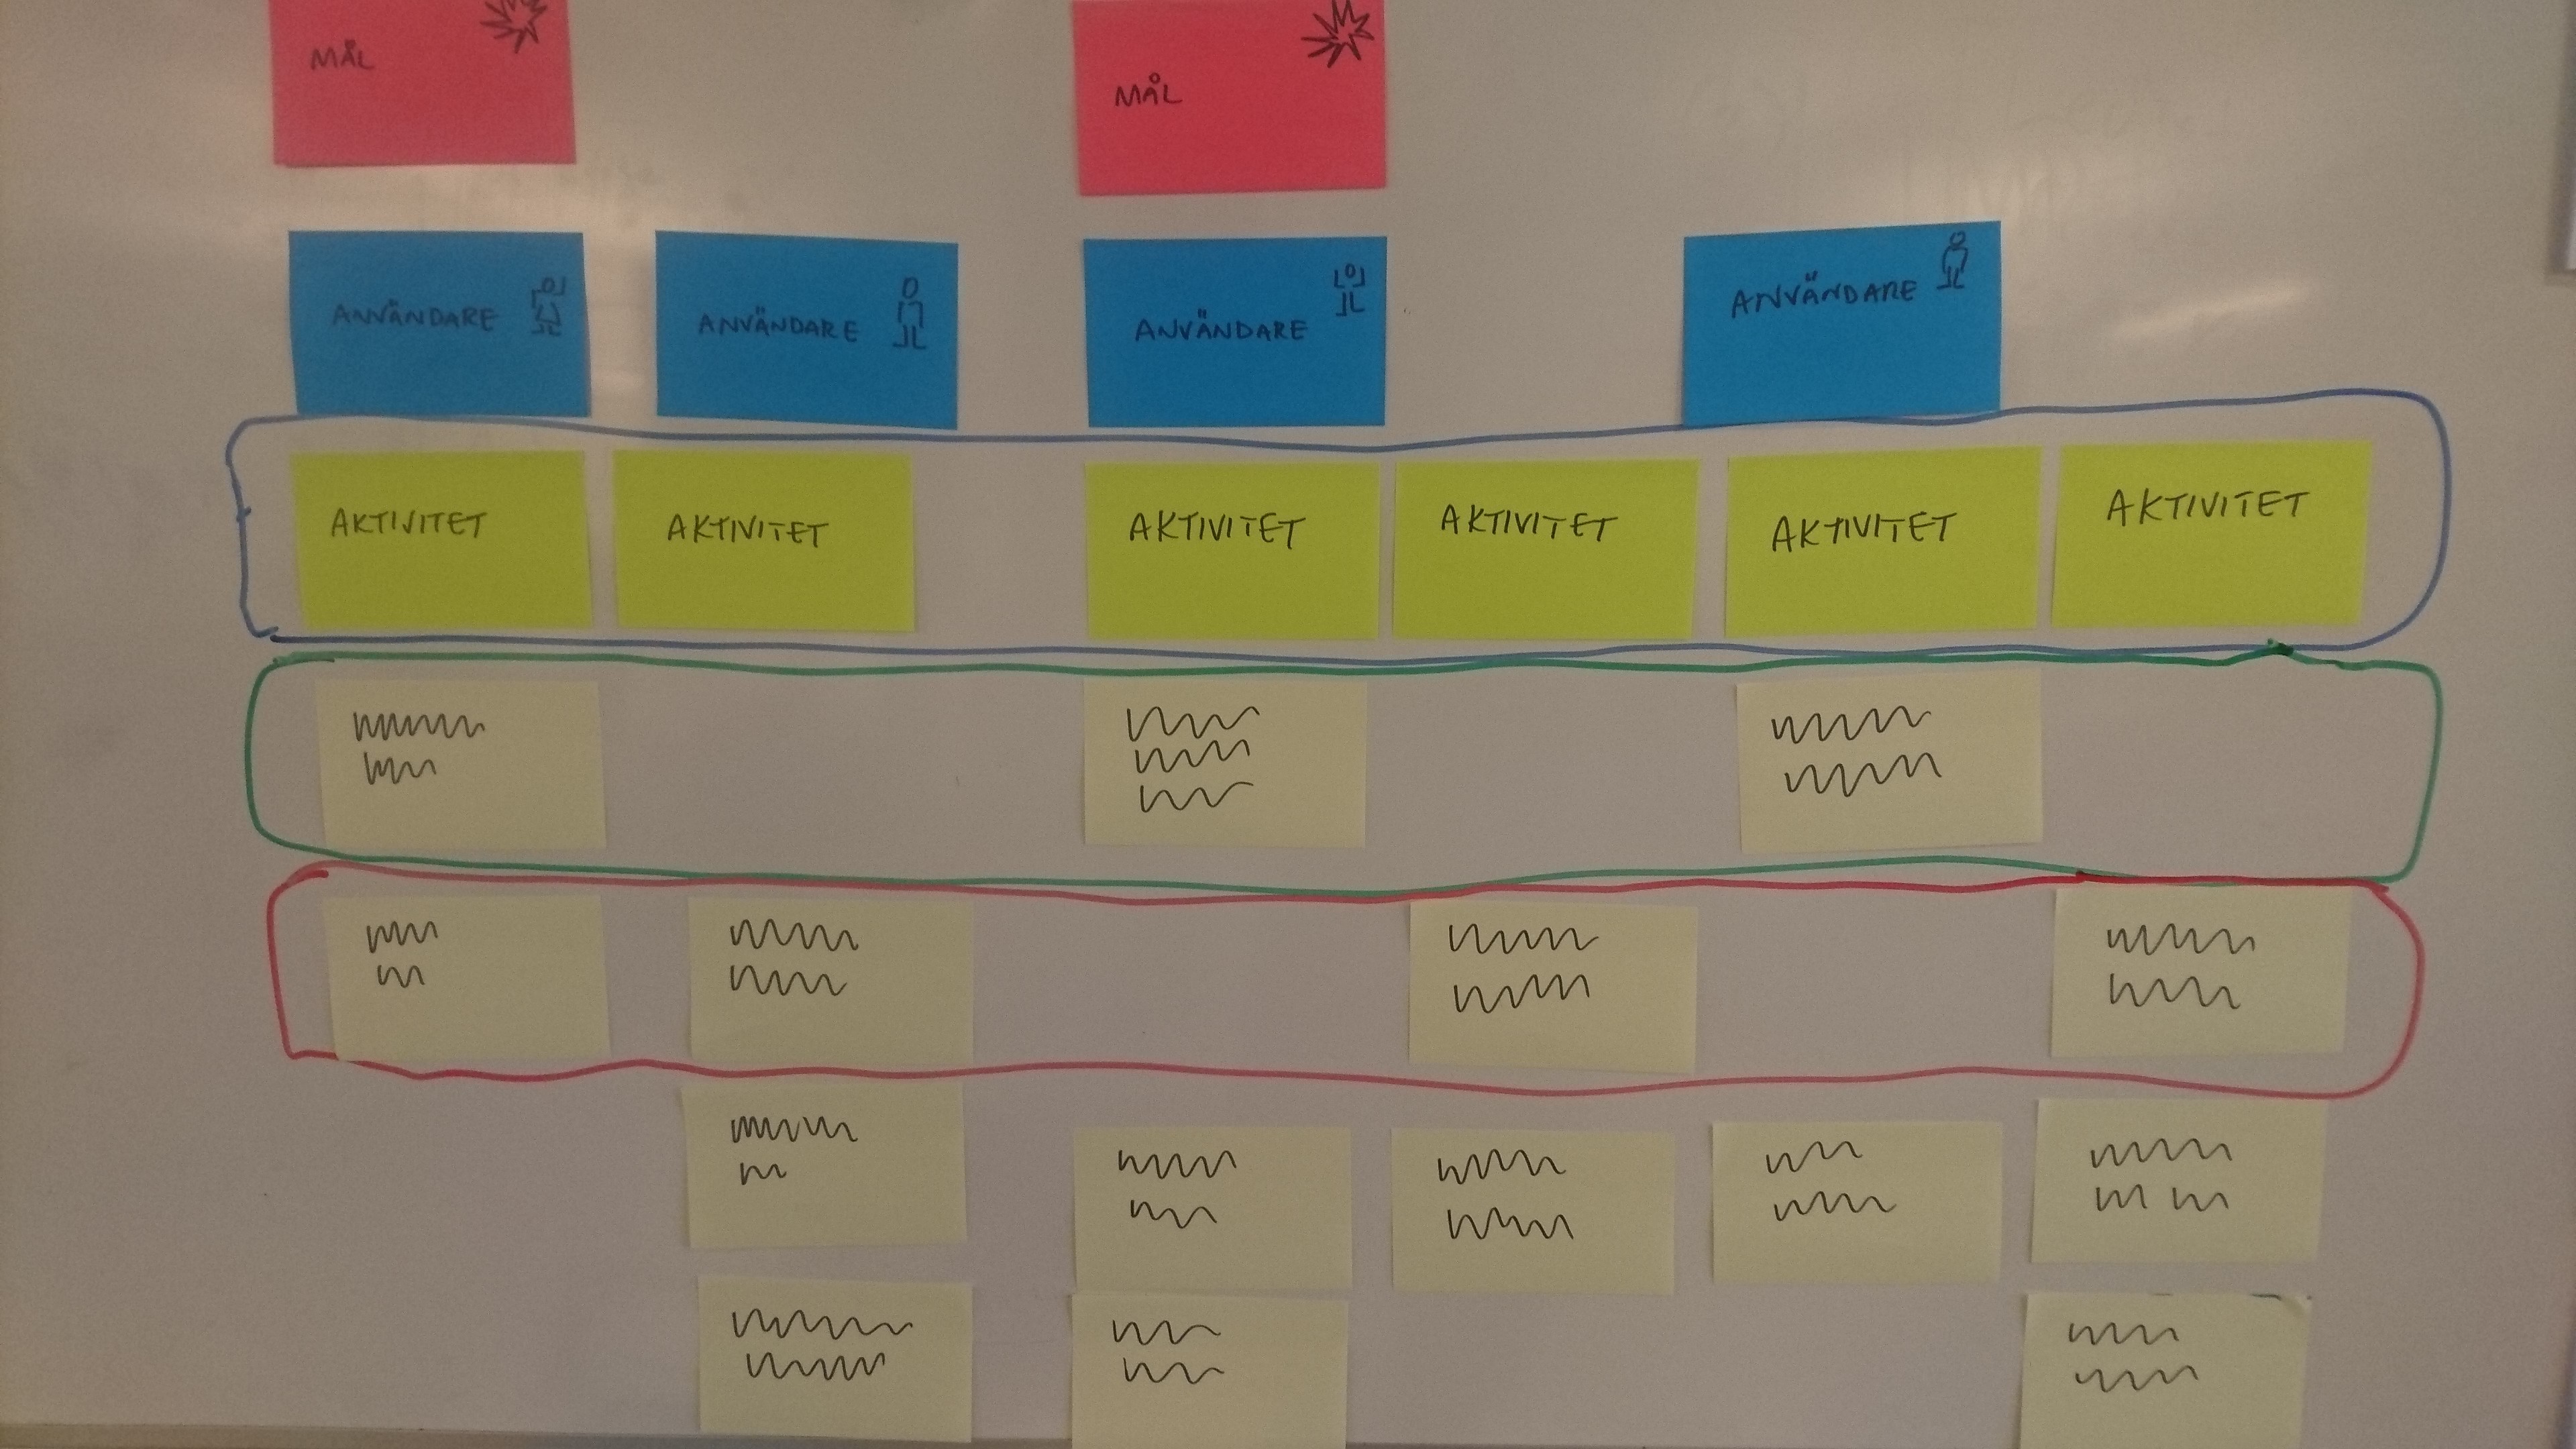 MÅL
MÅL
ANVÄNDARE
ANVÄNDARE
ANVÄNDARE
ANVÄNDARE
AKTIVITET
AKTIVITET
AKTIVITET
AKTIVITET
AKTIVITET
AKTIVITET